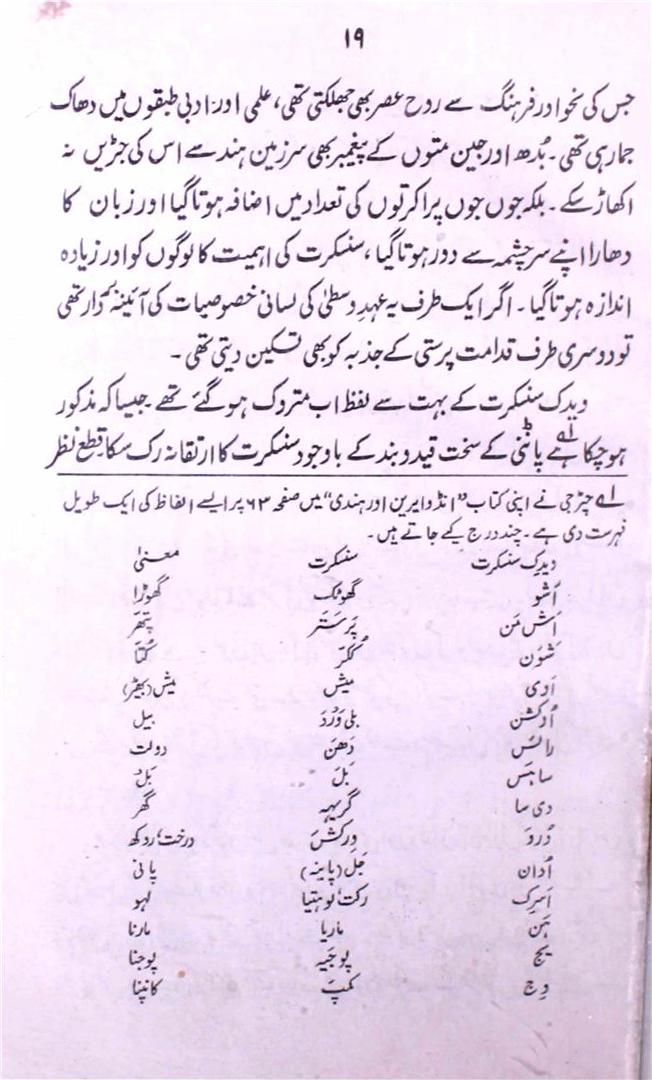 ۱۹
جس کی نحو اور فرہنگ سے روحِ عصر بھی جھلکتی تھی، علمی اور ادبی طبقوں میں دھاک
جما رہی تھی۔ بُدھ اور جین متوں کے پیغمبر بھی سرزمینِ ہند سے اس کی جڑیں نہ
اکھاڑ سکے۔ بلکہ جوں جوں پراکرتوں کی تعداد میں اضافہ ہوتا گیا اور زبان کا
دھارا اپنے سرچشمہ سے دور ہوتا گیا، سنسکرت کی اہمیت کا لوگوں کو اور زیادہ
اندازہ ہوتا گیا۔ اگر ایک طرف یہ عہدِ وسطیٰ کی لسانی خصوصیات کی آئینہ بردار تھی
تو دوسری طرف قدامت پرستی کے جذبہ کو بھی تسکین دیتی تھی۔
ویدک سنسکرت کے بہت سے لفظ اب متروک ہو گئے تھے جیسا کہ مذکور
ہو چکا ہے پانِنی کے سخت قید و بند کے باوجود سنسکرت کا ارتقا نہ رک سکا قطع نظر
لے چٹرجی نے اپنی کتاب "انڈو ایرین اور ہندی" میں صفحہ ۶۳ پر ایسے الفاظ کی ایک طویل
فہرست دی ہے۔ چند درج کیے جاتے ہیں۔
ویدک سنسکرت سنسکرت معنیٰ
اَشو گھوٹک گھوڑا
اَش مَن پَرستَر پتھر
شْوَن کُکّر کُتّا
اَوی میش میش (بھیڑ)
اُوکشن بلی وَرَد بیل
رائس دَھن دولت
ساہس بَل بَل
دی سا گریہہ گھر
دَرود وِرکش درخت، روکھ
اُدان جَل (پانیہ) پانی
اَسرک رکت لوہتیا لہو
ہَن ماریا مارنا
یج پوجیہ پوجنا
وِج کمپ کانپنا